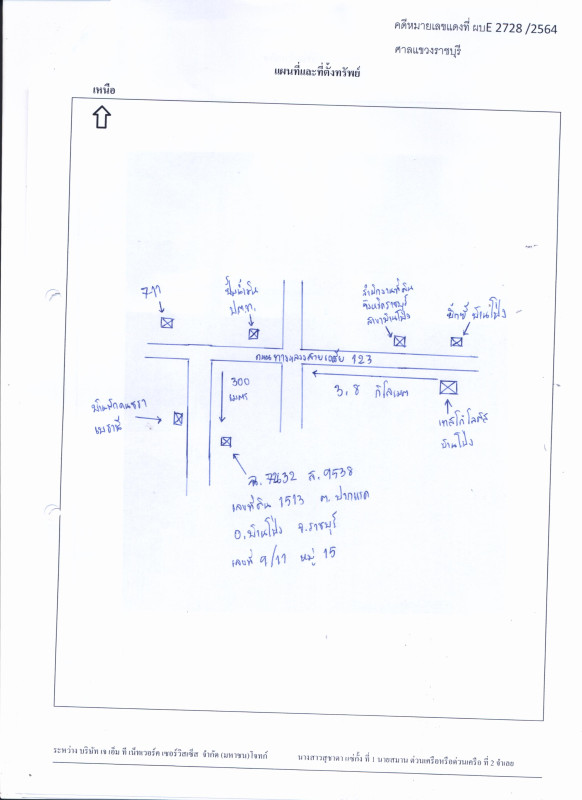 คดีหมายเลขแดงที่ ผบE 2728 /2564
ศาลแขวงราชบุรี
แผนที่และที่ตั้งทรัพย์
เหนือ
7-11
ปั๊มน้ำมัน
ปตท.
สำนักงานที่ดิน
จังหวัดราชบุรี
สาขาบ้านโป่ง
บิ๊กซี บ้านโป่ง
ถนนทางหลวงสายเอเชีย 123
300
เมตร
3.8 กิโลเมตร
เทสโก้ โลตัส
บ้านโป่ง
บ้านพักคนชรา
ฉ. 72632 ล. 9538
เลขที่ดิน 1513 ต. ปากแรต
อ. บ้านโป่ง จ.ราชบุรี
เลขที่ 9/11 หมู่ 15
ระหว่าง บริษัท เจ เอ็ม ที เน็ทเวอร์ค เซอร์วิสเซ็ส จำกัด (มหาชน) โจทก์
นางสาวสุชาดา แซ่กั้ง ที่ 1 นายสมาน ด่วนเครือหรือด่วนเครือ ที่ 2 จำเลย